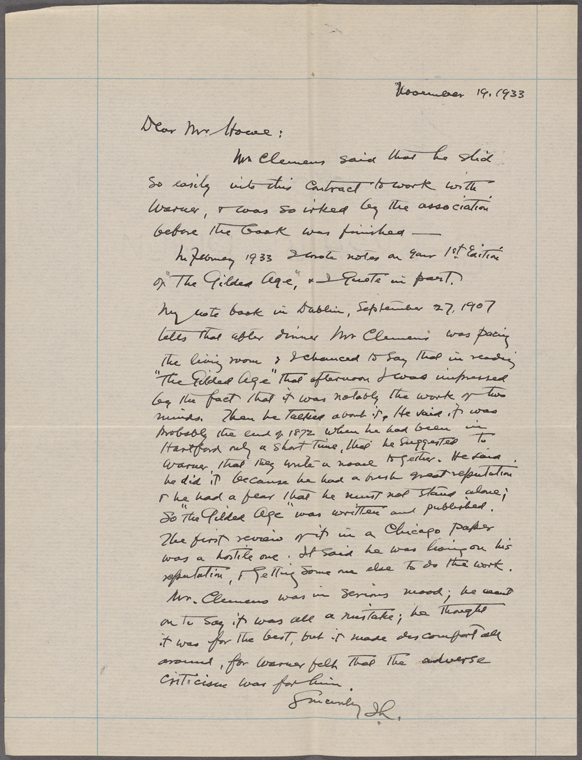 November 19, 1933
Dear Mr Howe:
Mr Clemens said that he slid
so easily into this contract to work with
Warner, & was so irked by the association
before the book was finished —
In February 1933 I wrote notes on your 1st Edition
of "The Gilded Age", & I quote in part.
My note book in Dublin, September 27, 1907
tells that after dinner Mr Clemens was pacing
the living room & I chanced to say that in reading
"The Gilded Age" that afternoon I was impressed
by the fact that it was notably the work of two
minds. Then he talked about it. He said it was
probably the end of 1872 when he had been in
Hartford only a short time, that he suggested to
Warner that they write a novel together. He said
he did it because he had a great reputation
& he had a fear that he must not stand alone;
so "the Gilded Age" was written and published.
The first review of it in a Chicago paper
was a hostile one. It said he was living on his
reputation, & getting some one else to do the work.
Mr. Clemens was in serious mood; he went
on to say it was all a mistake; he thought
it was for the best, but it made discomfort all
around, for Warner felt that the adverse
criticism was for him.
Sincerely